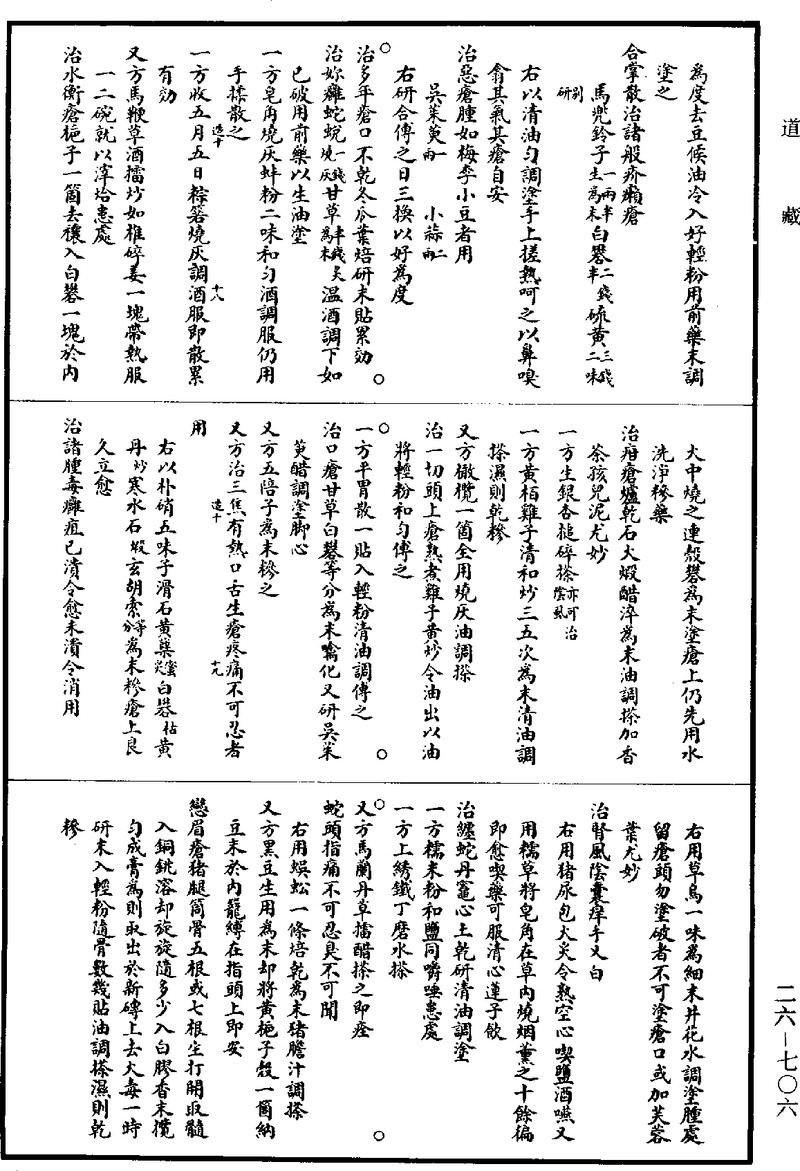 道藏
爲度去豆候油冷入好輕粉用前藥末調
塗之
合掌散治諸般疥癩瘡
馬兜鈴子一兩半生爲末白礬二錢半硫黃三錢二味別研
右以清油勻調塗手上搓熱呵之以鼻嗅
翕其氣其瘡自安
治惡瘡腫如梅李小豆者用
吳茱萸一兩 小蒜一兩
右研合傅之日三換以好爲度
治多年瘡口不乾冬瓜葉焙研末貼累効
治妳癰蛇蛻一錢燒灰甘草半錢爲末炙溫酒調下如
已破用前藥以生油塗
一方皂角燒灰蚌粉二味和勻酒調服仍用
手揉散之
造十
一方收五月五日粽箬燒灰調酒服即散累
十八
有効
又方馬鞭草酒擂炒如椎碎姜一塊帶熱服
一二碗就以滓㕸患處
治水衡瘡梔子一箇去穰入白礬一塊於內
火中燒之連殼礬爲末塗瘡上仍先用水
洗淨糝藥
治疳瘡爐乾石火煅醋淬爲末油調搽加香
茶孩兒泥尤妙
一方生銀杏搥碎搽亦可治陰虱
一方黃栢雞子清和炒三五次爲末清油調
搽濕則乾糝
又方橄欖一箇全用燒灰油調搽
治一切頭上瘡熟煮雞子黃炒令油出以油
將輕粉和勻傅之
一方平胃散一貼入輕粉清油調傅之
治口瘡甘草白礬等分爲末噙化又研吳茱
萸醋調塗脚心
又方五陪子爲末糝之
又方治三焦有熱口舌生瘡疼痛不可忍者
造十
十九
用
右以朴硝五味子滑石黃蘗蜜炙白礬枯黃
丹炒寒水石煅玄胡索等分爲末糝瘡上良
久立愈
治諸腫毒癰疽已潰令愈未潰令消用
右用草烏一味爲細末井花水調塗腫處
留瘡頭勿塗破者不可塗瘡口或加芙蓉
葉尤妙
治腎風陰囊痒手乂白
右用猪尿包火炙令熟空心喫鹽酒嚥又
用糯草將皂角在草內燒烟薰之十餘徧
即愈喫藥可服清心蓮子飲
治纏蛇丹竈心土乾研清油調塗
一方糯米粉和鹽同嚼唾患處
一方上綉鐵丁磨水搽
又方馬蘭丹草擂醋搽之即痊
蛇頭指痛不可忍臭不可聞
右用蜈蚣一條焙乾爲末猪膽汁調搽
又方黑豆生用爲末却將黃梔子殼一箇納
豆末於內籠縛在指頭上即安
戀眉瘡猪腿筒骨五根或七根生打開取髓
入銅銚溶却旋旋隨多少入白膠香末攪
勻成膏爲則取出於新磚上去火毒一時
研末入輕粉隨骨數幾貼油調搽濕則乾
糝
二六—七〇六